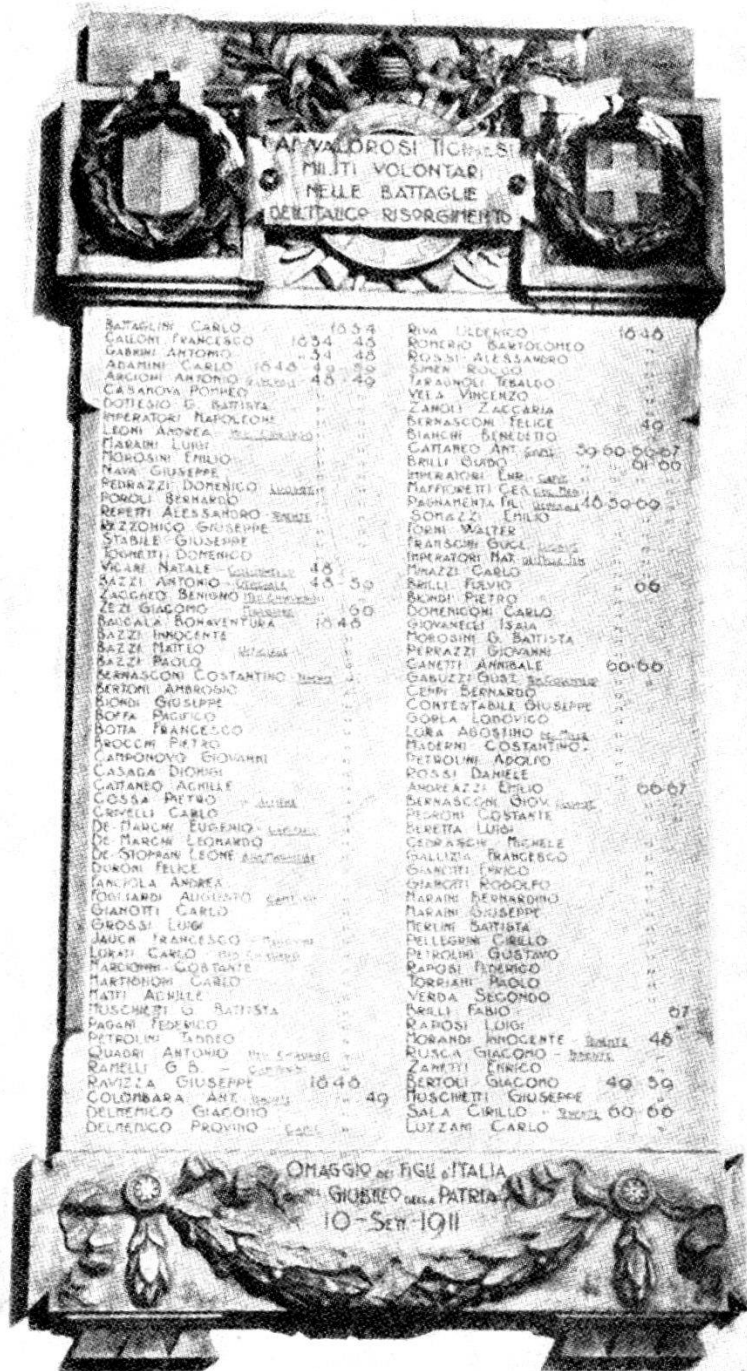 AI VALOROSI TICINESI
MILITI VOLONTARI
NELLE BATTAGLIE
DELL'ITALICO RISORGIMENTO
BATTAGLINI CARLO 1834
CALLONI FRANCESCO 1834 48
GABRINI ANTONIO " 34 48
ADAMINI CARLO 1848-49-59
ARCIONI ANTONIO GENERALE 48-49
CASANOVA POMPEO " "
DOTTESIO G. BATTISTA " "
IMPERATORI NAPOLEONE " "
LEONI ANDREA MED. CHIRURGO " "
MARAINI LUIGI " "
MOROSINI EMILIO " "
NAVA GIUSEPPE " "
PEDRAZZI DOMENICO " "
POROLI BERNARDO " "
REPETTI ALESSANDRO TENENTE " "
REZZONICO GIUSEPPE " "
STABILE GIUSEPPE " "
TOGNETTI DOMENICO " "
VICARI NATALE - COLONNELLO 48
BAZZI ANTONIO - 48-59
ZACCHEO BENIGNO MED. CHIRURGO " "
ZEZI GIACOMO - " 60
BACCALA BONAVENTURA 1848
BAZZI INNOCENTE "
BAZZI MATTEO "
BAZZI PAOLO "
BERNASCONI COSTANTINO "
BERTONI AMBROGIO "
BIONDI GIUSEPPE "
BOFFA PACIFICO "
BOTTA FRANCESCO "
BROCCHI PIETRO "
CAMPONOVO GIOVANNI "
CASAGA DIONIGI "
CATTANEO ACHILLE "
COSSA PIETRO "
CRIVELLI CARLO "
DE-MARCHI EUGENIO - "
DE-MARCHI LEONARDO "
DE-STOPPANI LEONE "
DURONI FELICE "
FANCIOLA ANDREA "
FOGLIARDI AUGUSTO "
GIANOTTI CARLO "
GROSSI LUIGI "
JAUCH FRANCESCO - "
LURATI CARLO - MED. CHIRURGO "
MARCIONNI COSTANTE "
MARTIGNONI CARLO "
MATTI ACHILLE "
MUSCHIETTI G. BATTISTA "
PAGANI FEDERICO "
PETROLINI TADDEO "
QUADRI ANTONIO MED. CHIRURGO "
RAMELLI G.B. - "
RAVIZZA GIUSEPPE 1848
COLOMBARA ANT. TENENTE " 49
DELMENICO GIACOMO " "
DELMENICO PROVINO - CAPIT. " "
RIVA ULDERICO 1848
ROMERIO BARTOLOMEO "
ROSSI ALESSANDRO "
SIMEN ROCCO "
TARAGNOLI TEBALDO "
VELA VINCENZO "
ZANOLI ZACCARIA "
BERNASCONI FELICE 49
BIANCHI BENEDETTO "
CATTANEO ANT. CAPIT. 59-60-66-67
BRILLI GUIDO " 61-66
IMPERATORI ENR. CAPIT. " "
MAFFIORETTI CES. "
PAGNAMENTA FIL. GENERALE 48-59-60
SOMAZZI EMILIO "
FORNI WALTER "
FRANSCINI GUGL. "
IMPERATORI NAT. DEI MILLE "
MINAZZI CARLO "
BRILLI FULVIO " 66
BIONDI PIETRO "
DOMENICONI CARLO "
GIOVANELLI ISAIA "
MOROSINI G. BATTISTA "
PERRAZZI GIOVANNI "
CANETTI ANNIBALE 60-66
GABUZZI GUST. "
CENPI BERNARDO "
CONTESTABILE GIUSEPPE "
GORLA LODOVICO "
LURA AGOSTINO DEI MILLE "
MADERNI COSTANTINO - "
PETROLINI ADOLFO "
ROSSI DANIELE "
ANDREAZZI EMILIO 66-67
BERNASCONI GIOV. " "
PEDRONI COSTANTE " "
BERETTA LUIGI "
CEDRASCHI MICHELE "
GALLIZIA FRANCESCO "
GIANOTTI ENRICO "
GIANOTTI RODOLFO "
MARAINI BERNARDINO "
MARAINI GIUSEPPE "
MERLINI BATTISTA "
PELLEGRINI CIRILLO "
PETROLINI GUSTAVO "
RAPOSI FEDERICO "
TORRIANI PAOLO "
VERDA SECONDO "
BRILLI FABIO 67
RAPIOSI LUIGI "
MORANDI INNOCENTE - TENENTE 48
RUSCA GIACOMO - TENENTE "
ZANETTI ENRICO "
BERTOLI GIACOMO 49 59
MUSCHIETTI GIUSEPPE " "
SALA CIRILLO - TENENTE 60-66
LUZZANI CARLO " "
OMAGGIO DEI FIGLI D'ITALIA
NEL GIUBILEO DELLA PATRIA
10-SETT-1911